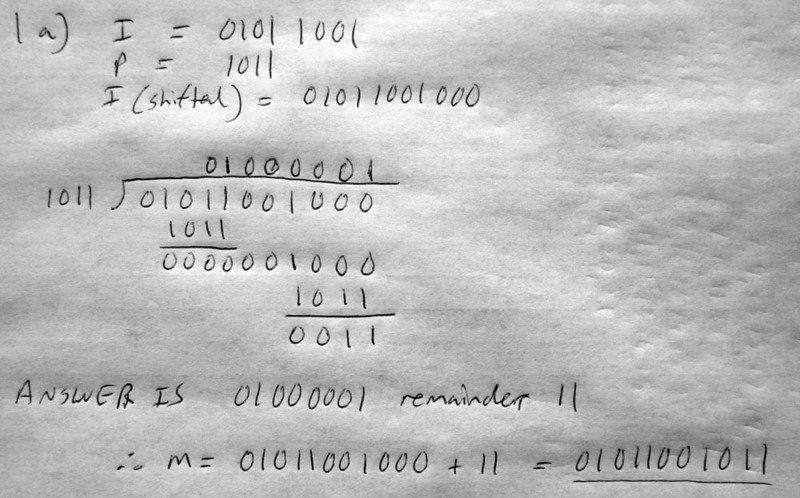 1a) I = 01011001
P = 1011
I (shifted) = 01011001000
01000001
1011 ) 01011001000
1011
0000001000
1011
0011
ANSWER IS 01000001 remainder 11
∴ m = 01011001000 + 11 = 01011001011